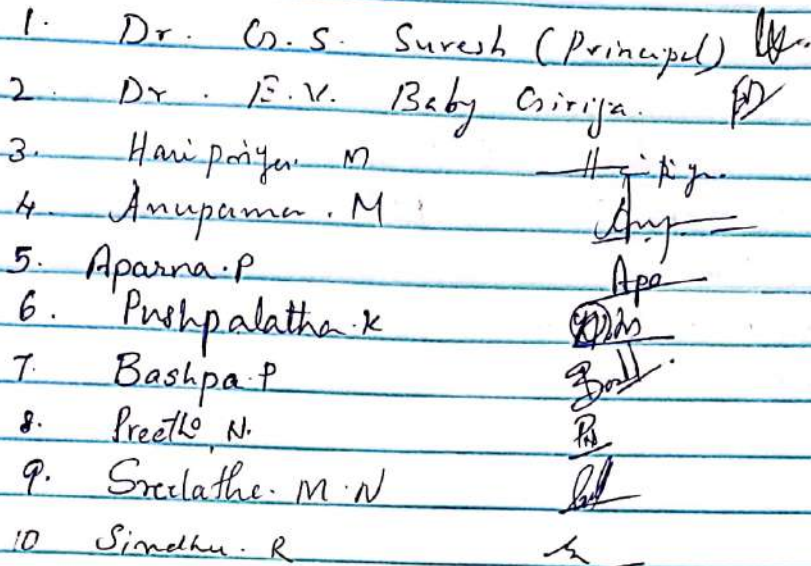 1. Dr. G.S. Suresh (Principal)
2. Dr. E.V. Baby Girija.
3. Haripriya. M
4. Anupama. M
5. Aparna. P
6. Pushpalatha. K
7. Bashpa. P
8. Preetho N. PN
9. Sreelatha. M. N
10 Sindhu. R